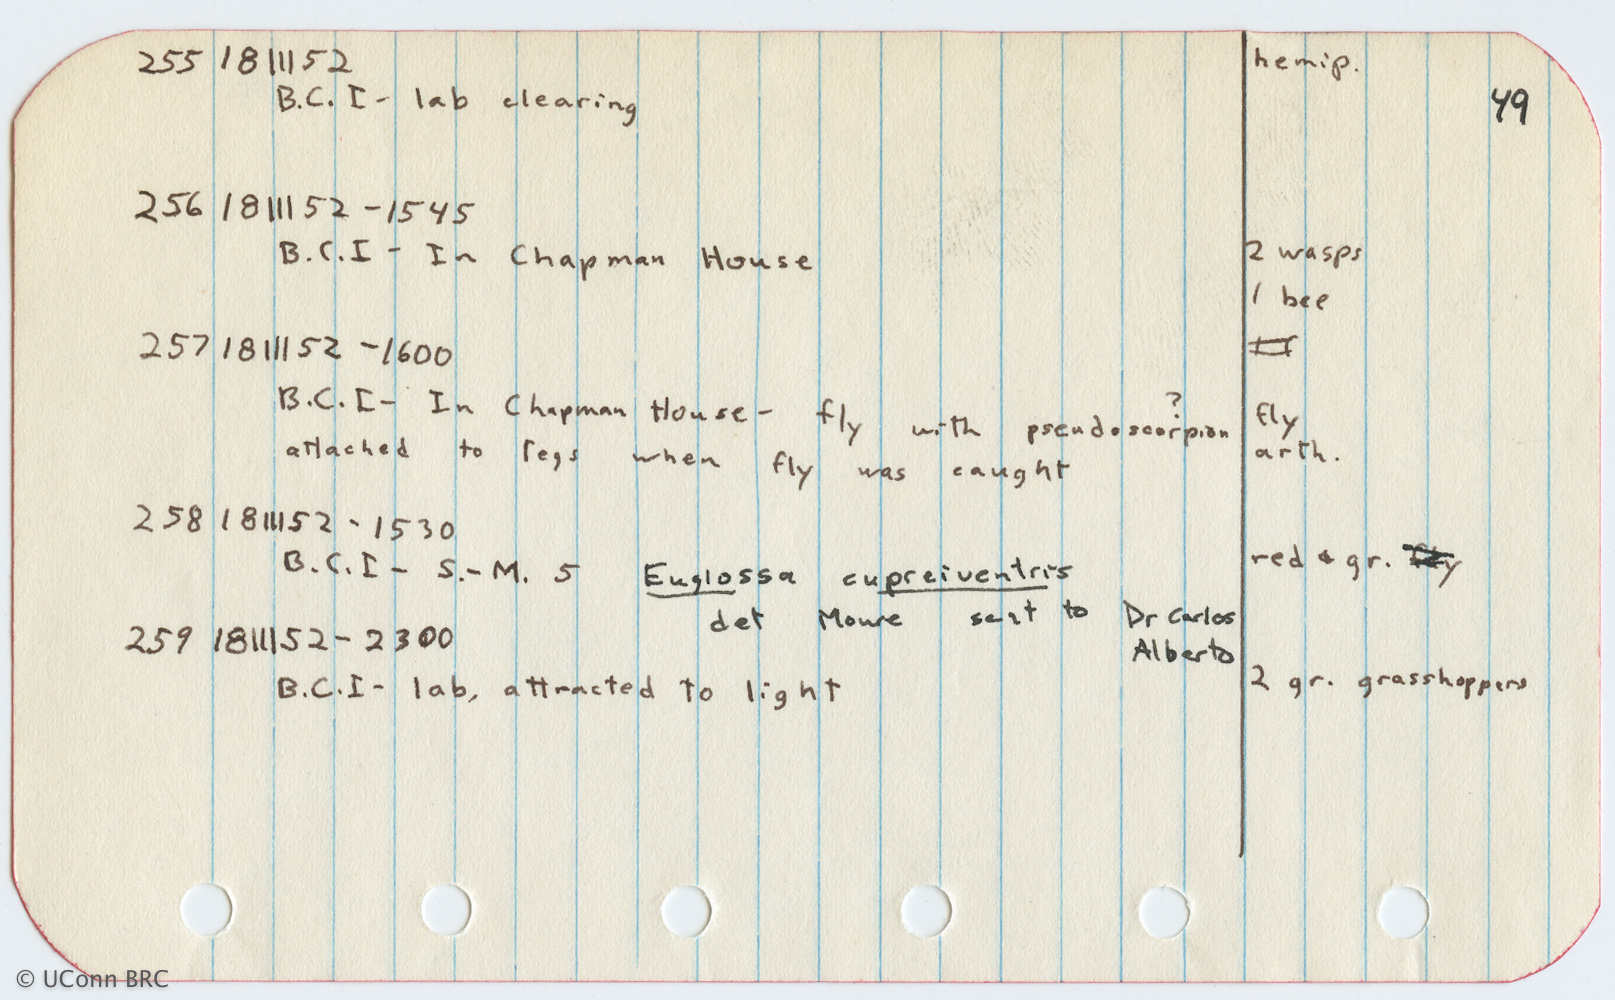 255 18 III 52 hemip.
49
B.C.I - lab clearing
256 18 III 52 - 1545
B.C.I - In Chapman House 2 wasps
1 bee
257 18 III 52 - 1600
B.C.I - In Chapman House - fly with pseudoscorpion ? fly
attached to legs when fly was caught arth.
258 18 III 52 - 1530
B.C.I - S.-M. 5 Euglossa cupreiventris red & gr. fly
det Moure sent to Dr Carlos
Alberto
259 18 III 52 - 2300
B.C.I - lab, attracted to light 2 gr. grasshoppers
© UConn BRC